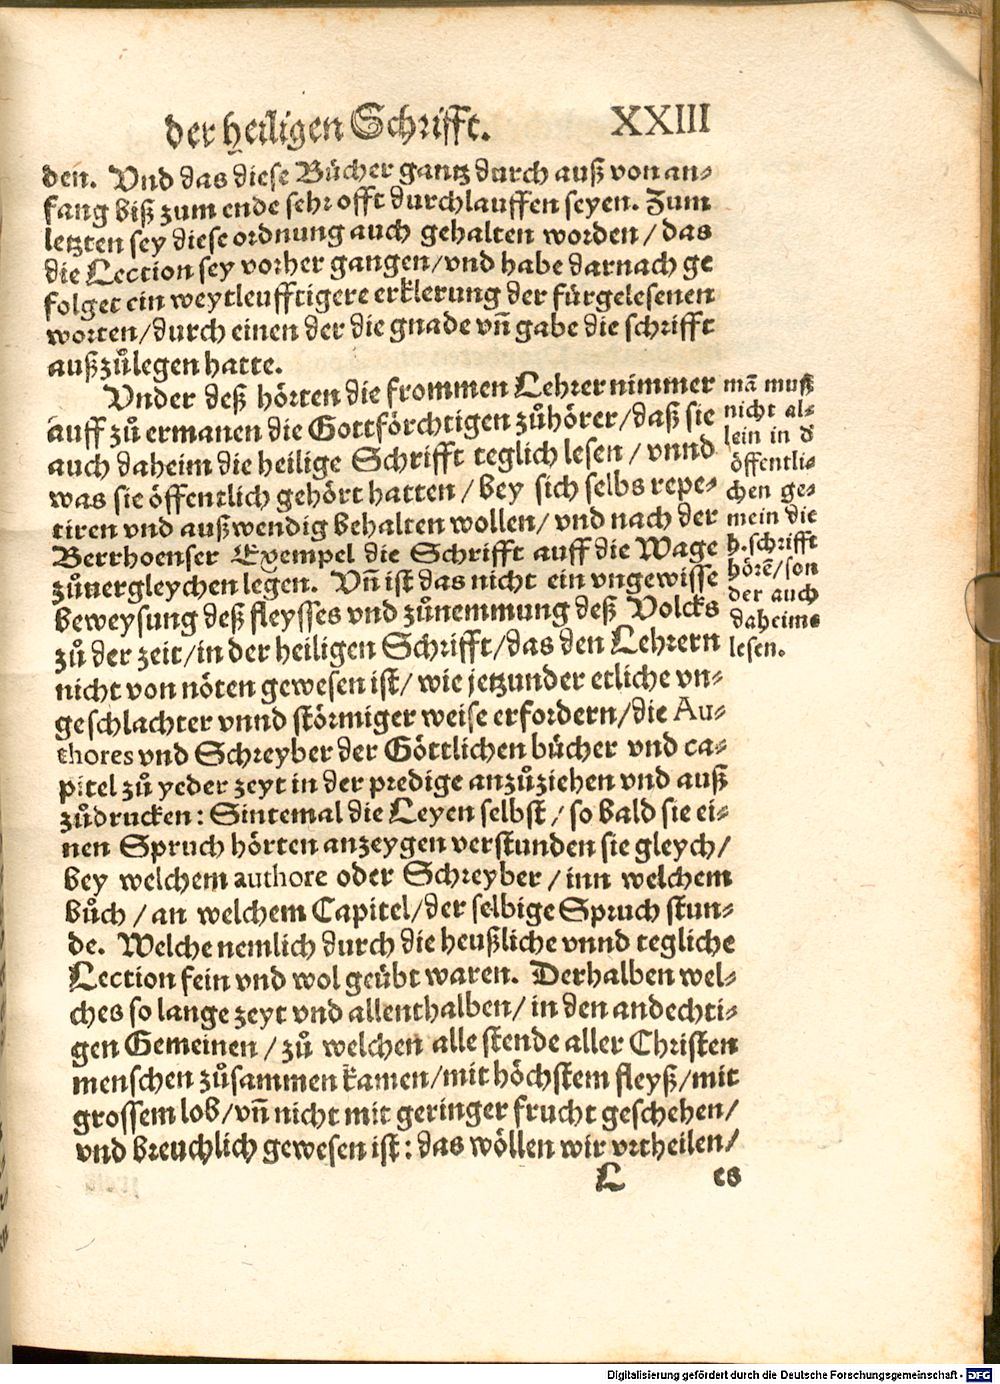 der heiligen Schrifft. XXIII
den. Vnd das diese Bücher gantz durch auß von an⸗
fang biß zum ende sehr offt durchlauffen seyen. Zum
letzten sey diese ordnung auch gehalten worden / das
die Lection sey vorher gangen/vnd habe darnach ge
folget ein weytleufftigere erklerung der fürgelesenen
worten/durch einen der die gnade vñ gabe die schrifft
außzůlegen hatte.
Vnder deß hörten die frommen Lehrer nimmer
auff zů ermanen die Gottförchtigen zůhörer/daß sie
auch daheim die heilige Schrifft teglich lesen / vnnd
was sie öffentlich gehört hatten / bey sich selbs repe⸗
tiren vnd außwendig behalten wollen/ vnd nach der
Berrhoenser Exempel die Schrifft auff die Wage
zůuergleychen legen. Vñ ist das nicht ein vngewisse
beweysung deß fleysses vnd zůnemmung deß Volcks
zů der zeit/in der heiligen Schrifft/das den Lehrern
nicht von nöten gewesen ist/ wie jetzunder etliche vn⸗
geschlachter vnnd störmiger weise erfordern/die Au⸗
thores vnd Schreyber der Göttlichen bücher vnd ca⸗
pitel zů yeder zeyt in der predige anzůziehen vnd auß
zůdrucken: Sintemal die Leyen selbst / so bald sie ei⸗
nen Spruch hörten anzeygen verstunden sie gleych/
bey welchem authore oder Schreyber / inn welchem
bůch / an welchem Capitel/der selbige Spruch stun⸗
de. Welche nemlich durch die heußliche vnnd tegliche
Lection fein vnd wol geübt waren. Derhalben wel⸗
ches so lange zeyt vnd allenthalben/ in den andechti⸗
gen Gemeinen / zů welchen alle stende aller Christen
menschen zůsammen kamen/mit höchstem fleyß/mit
grossem lob/vñ nicht mit geringer frucht geschehen/
vnd breuchlich gewesen ist: das wöllen wir vrtheilen/
L es
mã muß
nicht al⸗
lein in d
öffentli⸗
chen ge⸗
mein die
h.schrifft
hörẽ/son
der auch
daheime
lesen.
Digitalisierung gefördert durch die Deutsche Forschungsgemeinschaft - DFG